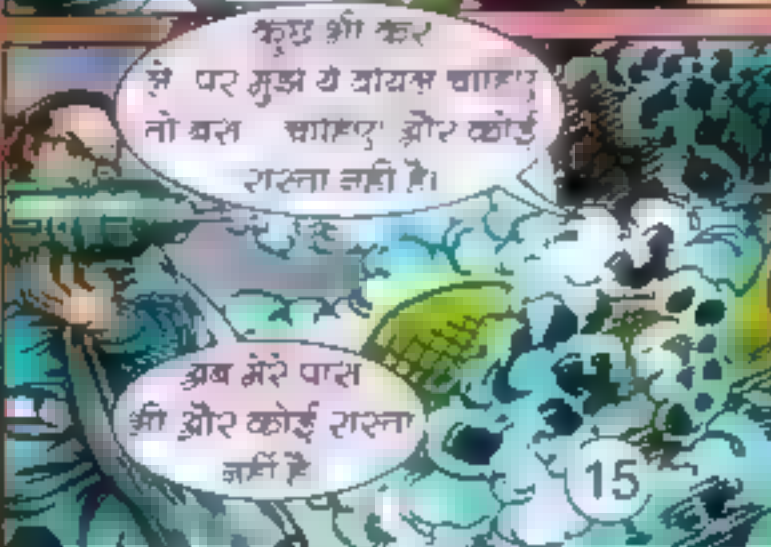 कुछ भी कर
ले पर मुझे ये वापस चाहिए
तो बस चाहिए और कोई
रास्ता नहीं है।
अब मेरे पास
भी और कोई रास्ता
नहीं है
15